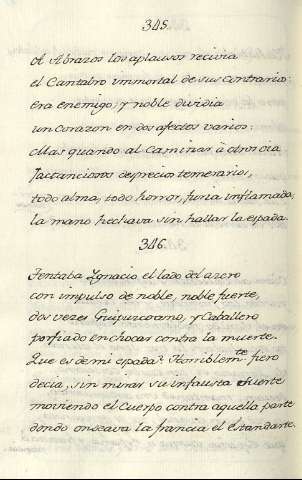 345.
A Abrazos los aplausos recivia
el Cantabro immortal de sus contrarios
era enemigo; y noble dividia
un corazon en dos afectos varios:
Mas quando al caminar à otros oia
Jactanciosos desprecios temerarios,
todo alma, todo horror, furia inflamada,
la mano hechava sin hallar la espada.
346.
Tentaba Ygnacio el lado del azero
con impulso de noble, noble fuerte,
dos vezes Guipuzcoano, y Caballero
porfiado en chocar contra la muerte.
Que es de mi espada? Horriblemte fiero
decia, sin mirar su infausta suerte
moviendo el Cuerpo contra aquella parte
donde ondeava la francia el estandarte.